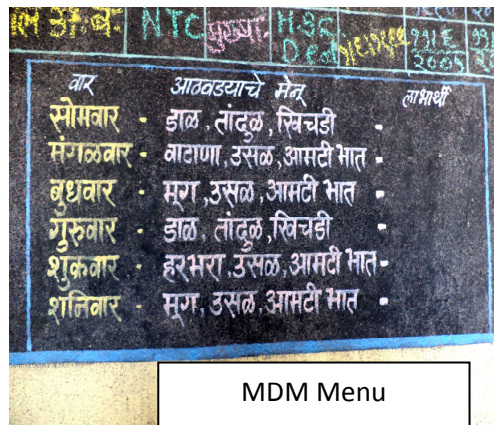 NTC मुख्या. H.Sc.
D.ed
2005
वार आठवडयाचे मेनू लाभार्थी
सोमवार - डाळ, तांदुळ, खिचडी -
मंगळवार - वाटाणा, उसळ, आमटी भात -
बुधवार - मूग, उसळ, आमटी भात -
गुरुवार - डाळ, तांदुळ, खिचडी -
शुक्रवार - हरभरा, उसळ, आमटी भात -
शनिवार - मूग, उसळ, आमटी भात -
MDM Menu